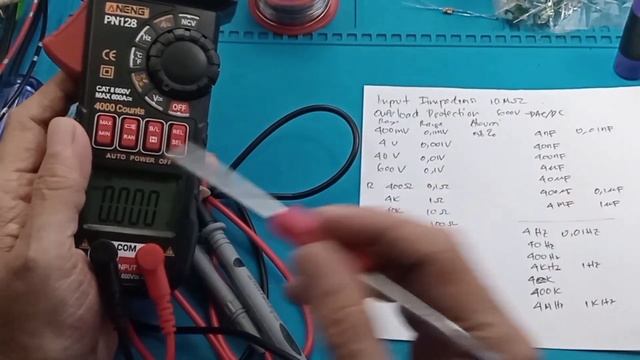 ANENG
PN128
NCV
Hz
V~
OFF
CAT II 600V
MAX 600A
4000 Counts
MAX
MIN
RAN
B/L
REL
SEL
AUTO POWER OFF
0.000
COM
INPUT
600V
Input Impedans 10MΩ
Overload Protection 600V DAC/DC
Range
400mV 0,1mV
4V 0,001V
40V 0,01V
600V 0,1V
R 400Ω 0,1Ω
4K 1Ω
40K 10Ω
100Ω
4nF 0,01nF
40nF
400nF
4µF
40µF
400µF 0,1µF
4mF 1µF
4Hz 0,01Hz
40Hz
400Hz
4KHz 1Hz
400K
4MHz 1KHz